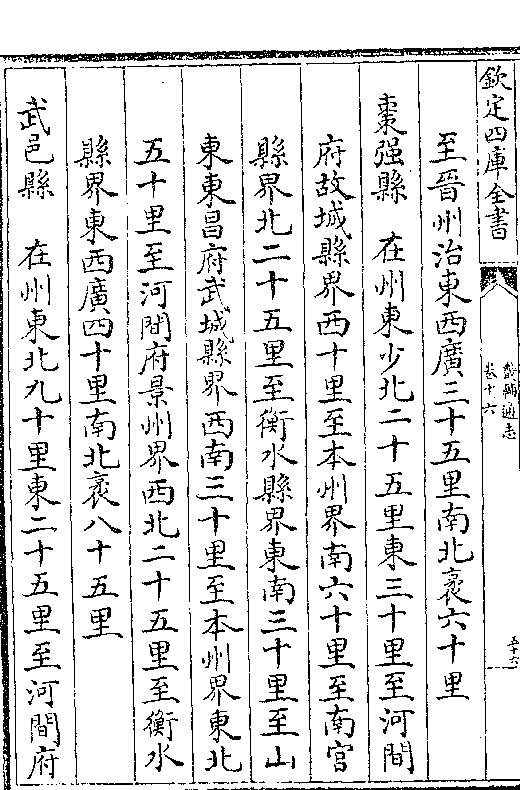 欽定四庫全書
畿輔通志
卷十六
五十六
至晉州治東西廣三十五里南北袤六十里
棗强縣　在州東少北二十五里東三十里至河間
府故城縣界西十里至本州界南六十里至南宮
縣界北二十五里至衡水縣界東南三十里至山
東東昌府武城縣界西南三十里至本州界東北
五十里至河間府景州界西北二十五里至衡水
縣界東西廣四十里南北袤八十五里
武邑縣　在州東北九十里東二十五里至河間府